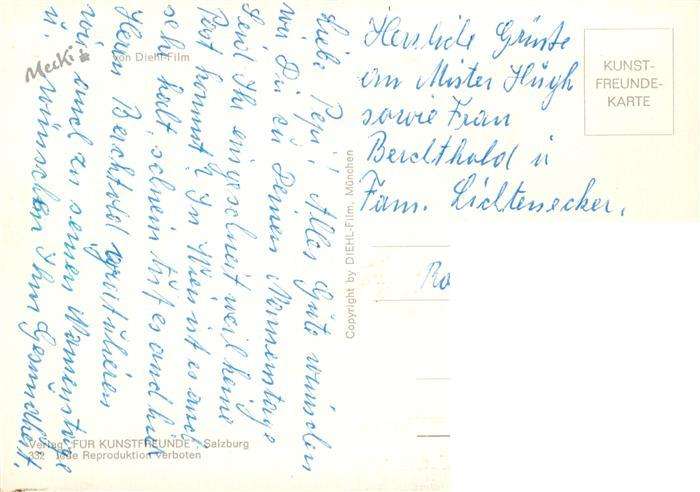 Liebe Pepi! Alles Gute wünschen
wir Dir zu Deinem Namenstage
Seid Ihr eingeschneit weil keine
Post kommt? In Wien ist es auch
sehr kalt, schneien tut es auch hier
Herrn Berchtold gratulieren
wir auch zu seinem Namenstage
u. wünschen Ihm Gesundheit.
Herzliche Grüsse
an Mister Hugh
sowie Frau
Berchthold u
Fam. Lichtenecker,
KUNST-
FREUNDE-
KARTE
Mecki
von Diehl-Film
Copyright by DIEHL-Film, München
Verlag „FÜR KUNSTFREUNDE“, Salzburg
332 Jede Reproduktion verboten